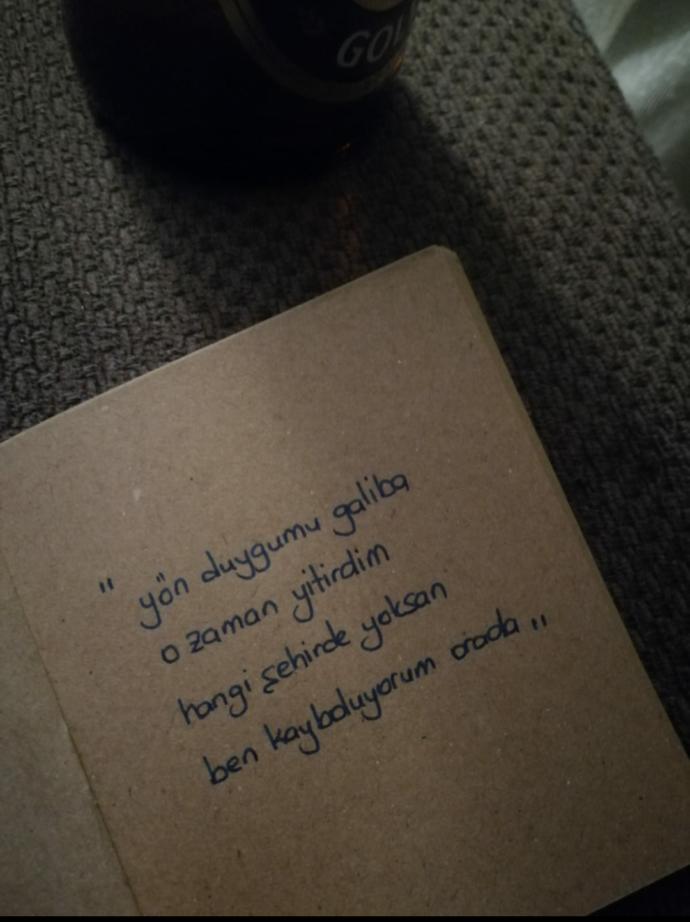 GOL
" yön duygumu galiba
o zaman yitirdim
hangi şehirde yoksan
ben kayboluyorum orada "